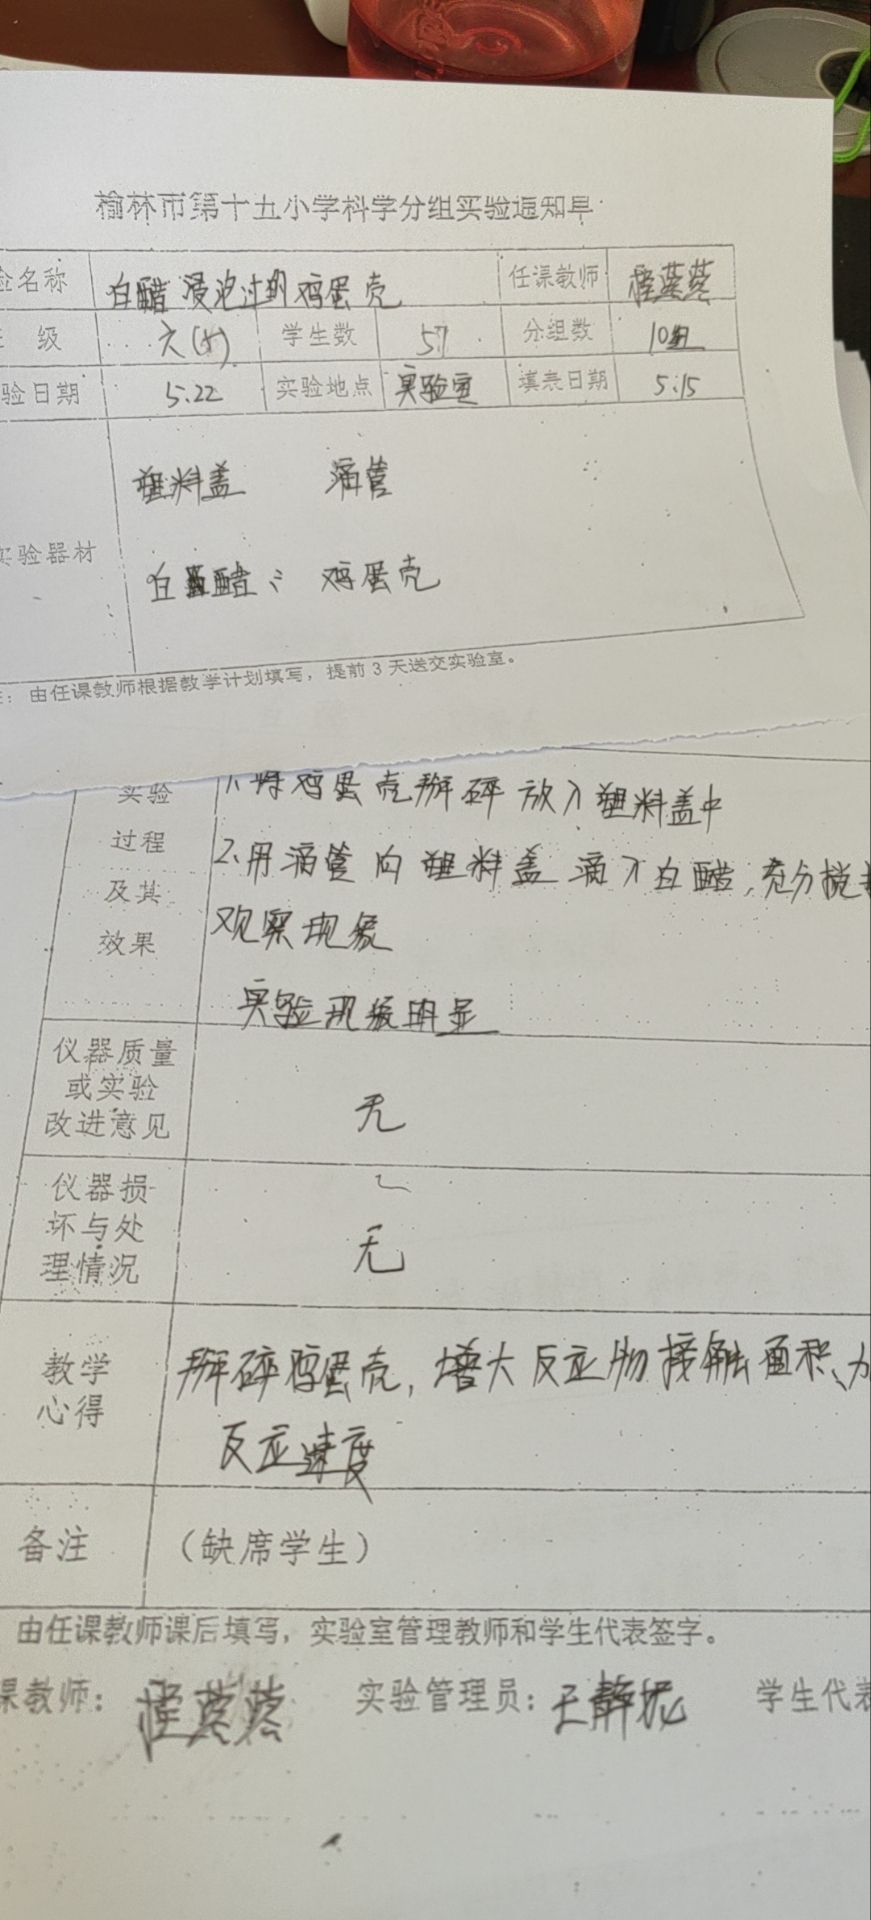 榆林市第十五小学科学分组实验通知单
验名称 白醋浸泡过的鸡蛋壳 任课教师
级 六(8) 学生数 57 分组数 10组
验日期 5.22 实验地点 实验室 填表日期 5.15
塑料盖 滴管
实验器材
白醋 鸡蛋壳
注：由任课教师根据教学计划填写，提前3天送交实验室。
实验 1.将鸡蛋壳掰碎放入塑料盖中
过程
及其 2.用滴管向塑料盖滴入白醋，充分搅
效果 观察现象
实验现象明显
仪器质量
或实验 无
改进意见
仪器损
坏与处 无
理情况
教学 掰碎鸡蛋壳，增大反应物接触面积、加
心得 反应速度
备注 （缺席学生）
由任课教师课后填写，实验室管理教师和学生代表签字。
课教师： 实验管理员：王静 学生代表